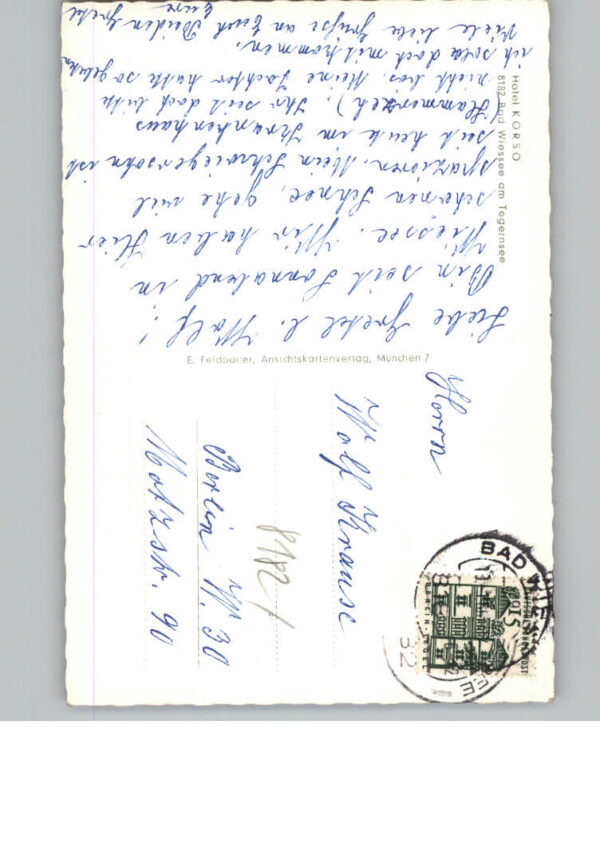 Hotel KORSO
8182 Bad Wiessee am Tegernsee
Liebe Gretel l. Wolf!
Bin seit Sonnabend in
Wiessee. Wir haben hier
schönen Schnee, gehe viel
spazieren. Mein Schwiegersohn ist
seit heute im Krankenhaus
Ihr seid doch bitte
nicht bös. Meine Tochter hatte so gebeten
ich solle doch mitkommen.
Viele liebe Grüße an Euch Beiden
Eure
E. Feldbauer, Ansichtskartenverlag, München 7
Herrn
Wolf Krause
8182/
Berlin W. 30
Motzstr. 90
BAD WIESSEE
15
8182
32